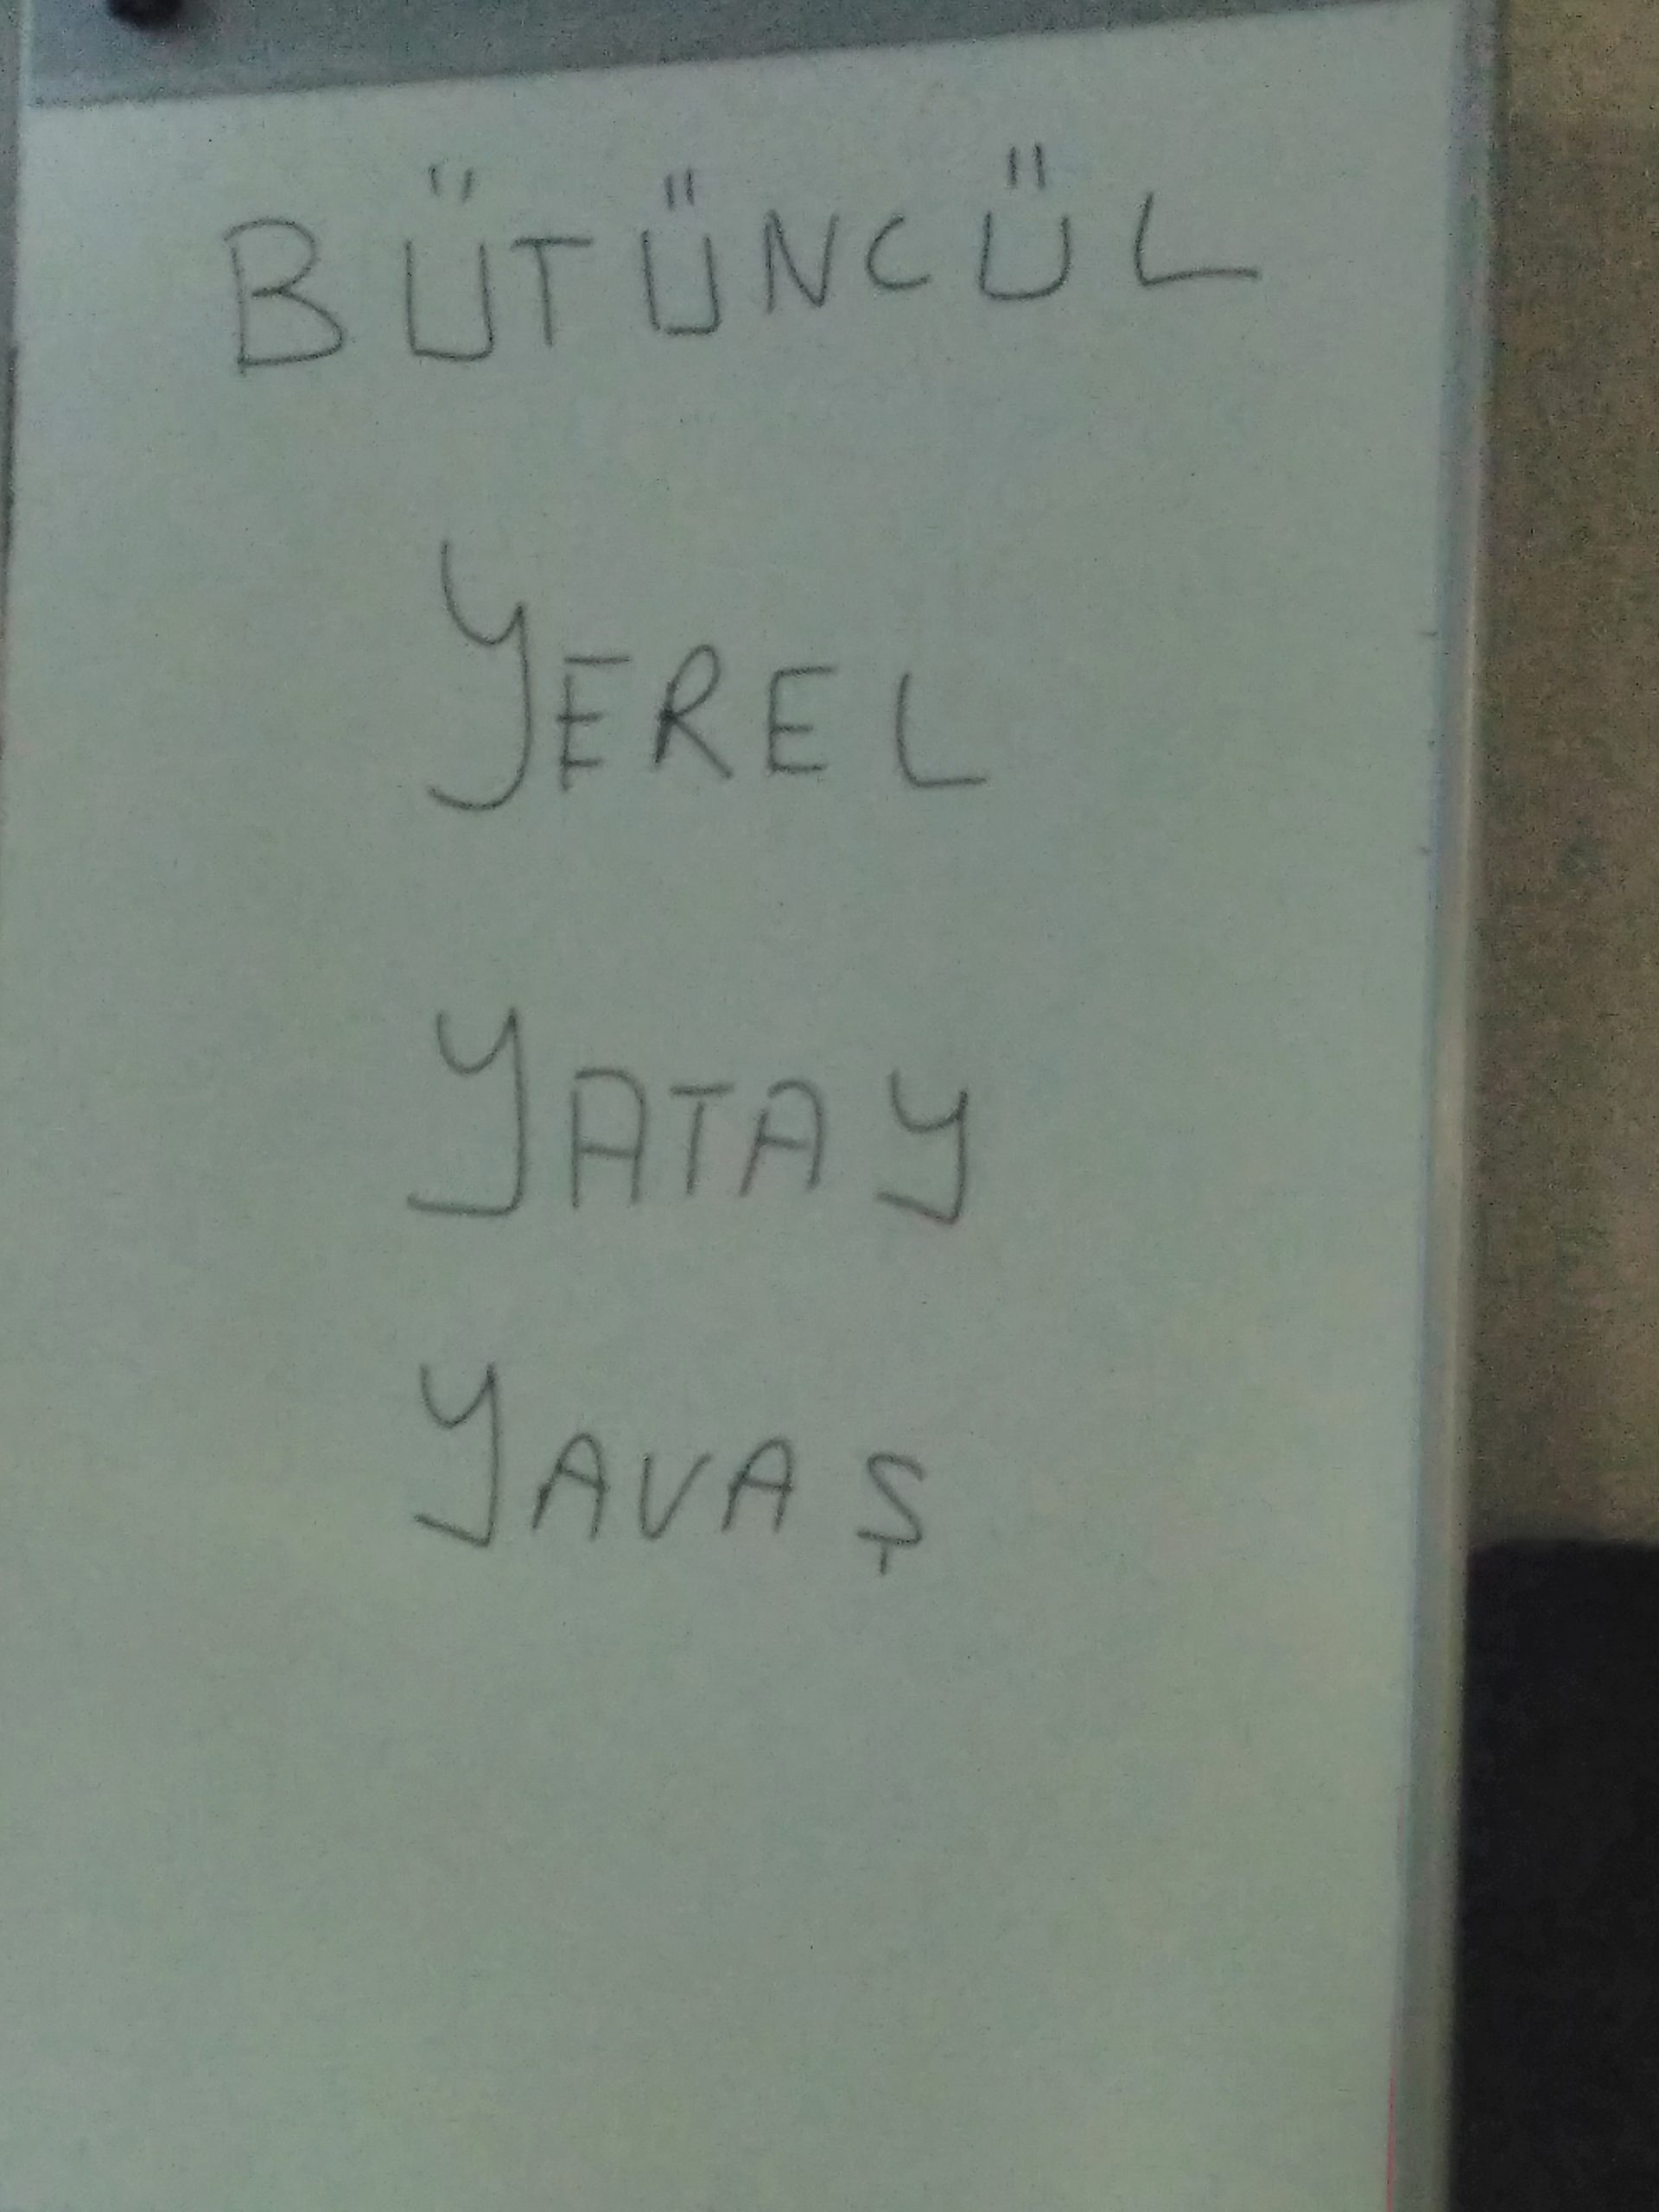 BÜTÜNCÜL
YEREL
YATAY
YAVAŞ